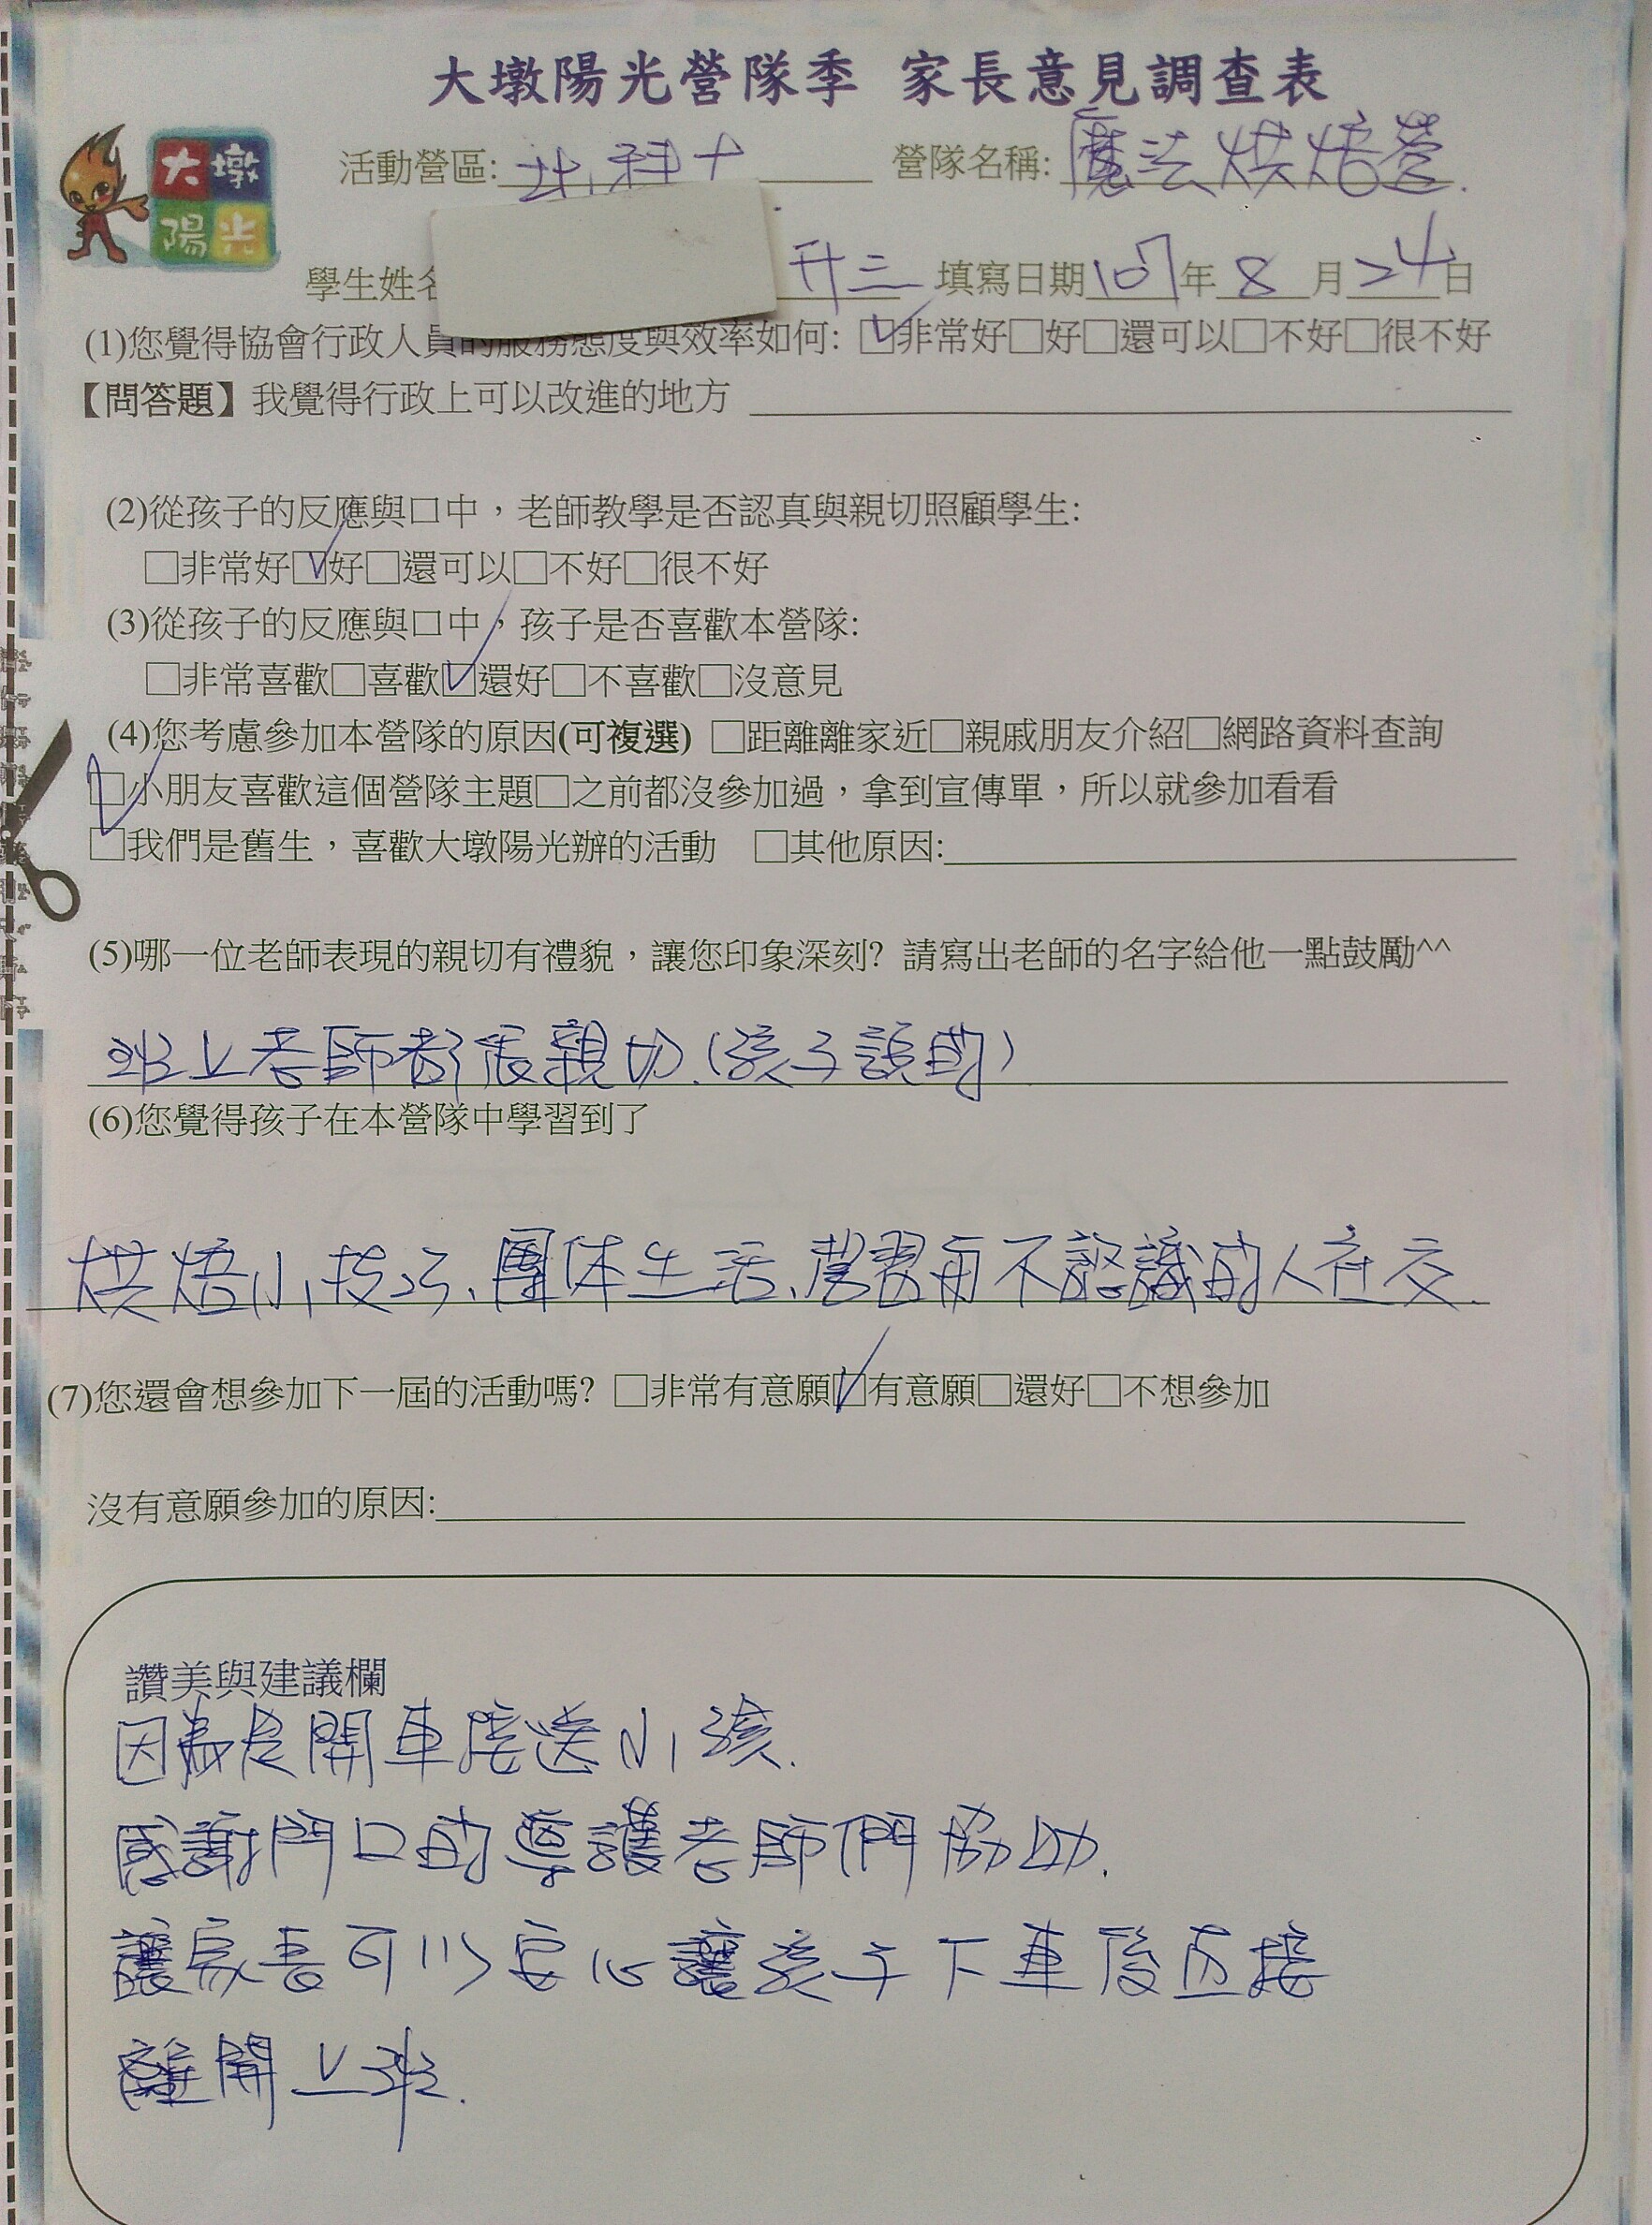 大墩陽光營隊季 家長意見調查表
大墩
陽光
活動營區: 北科大 營隊名稱: 魔法烘焙營.
學生姓名 升三 填寫日期107年8月24日
(1)您覺得協會行政人員的服務態度與效率如何: ☑非常好□好□還可以□不好□很不好
【問答題】我覺得行政上可以改進的地方
(2)從孩子的反應與口中，老師教學是否認真與親切照顧學生:
□非常好☑好□還可以□不好□很不好
(3)從孩子的反應與口中，孩子是否喜歡本營隊:
□非常喜歡□喜歡☑還好□不喜歡□沒意見
(4)您考慮參加本營隊的原因(可複選) □距離離家近□親戚朋友介紹□網路資料查詢
☑小朋友喜歡這個營隊主題□之前都沒參加過，拿到宣傳單，所以就參加看看
□我們是舊生，喜歡大墩陽光辦的活動 □其他原因:
(5)哪一位老師表現的親切有禮貌，讓您印象深刻? 請寫出老師的名字給他一點鼓勵^^
班上老師都很親切.(孩子說的)
(6)您覺得孩子在本營隊中學習到了
烘焙小技巧、團体生活、學習與不認識的人社交.
(7)您還會想參加下一屆的活動嗎? □非常有意願☑有意願□還好□不想參加
沒有意願參加的原因:
讚美與建議欄
因為是開車接送小孩.
感謝門口的導護老師們協助.
讓家長可以安心讓孩子下車後直接
離開上班.